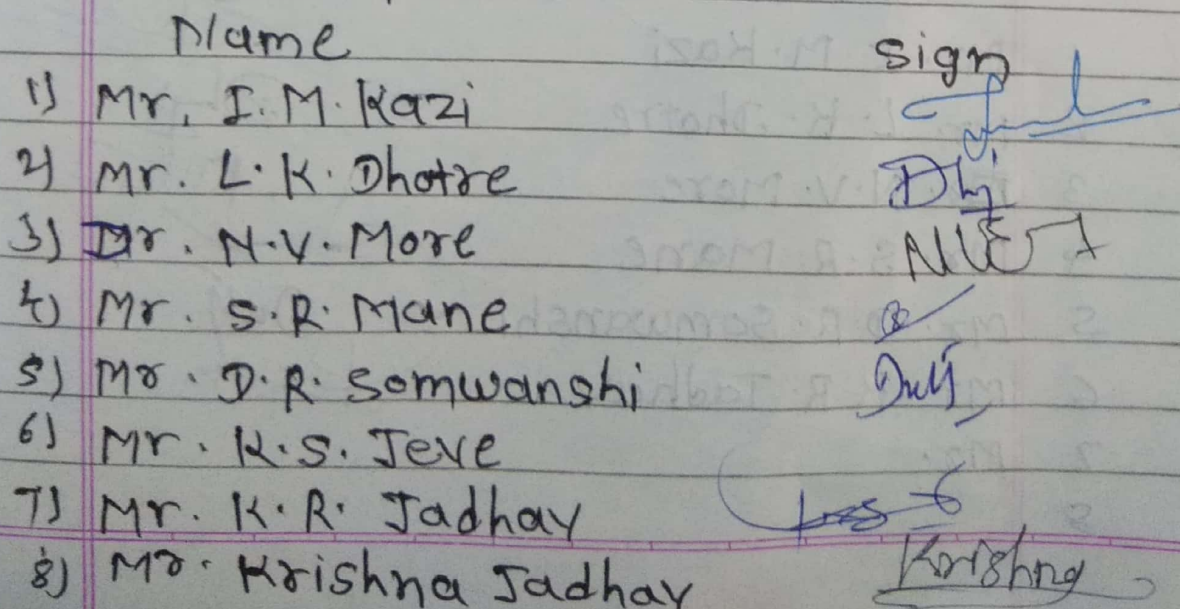 Name Sign
1) Mr. I. M. Kazi
2) Mr. L. K. Dhotre
3) Dr. N. V. More
4) Mr. S. R. Mane
5) Mr. D. R. Somwanshi
6) Mr. K. S. Jeve
7) Mr. K. R. Jadhav
8) Mr. Krishna Jadhav Krishna